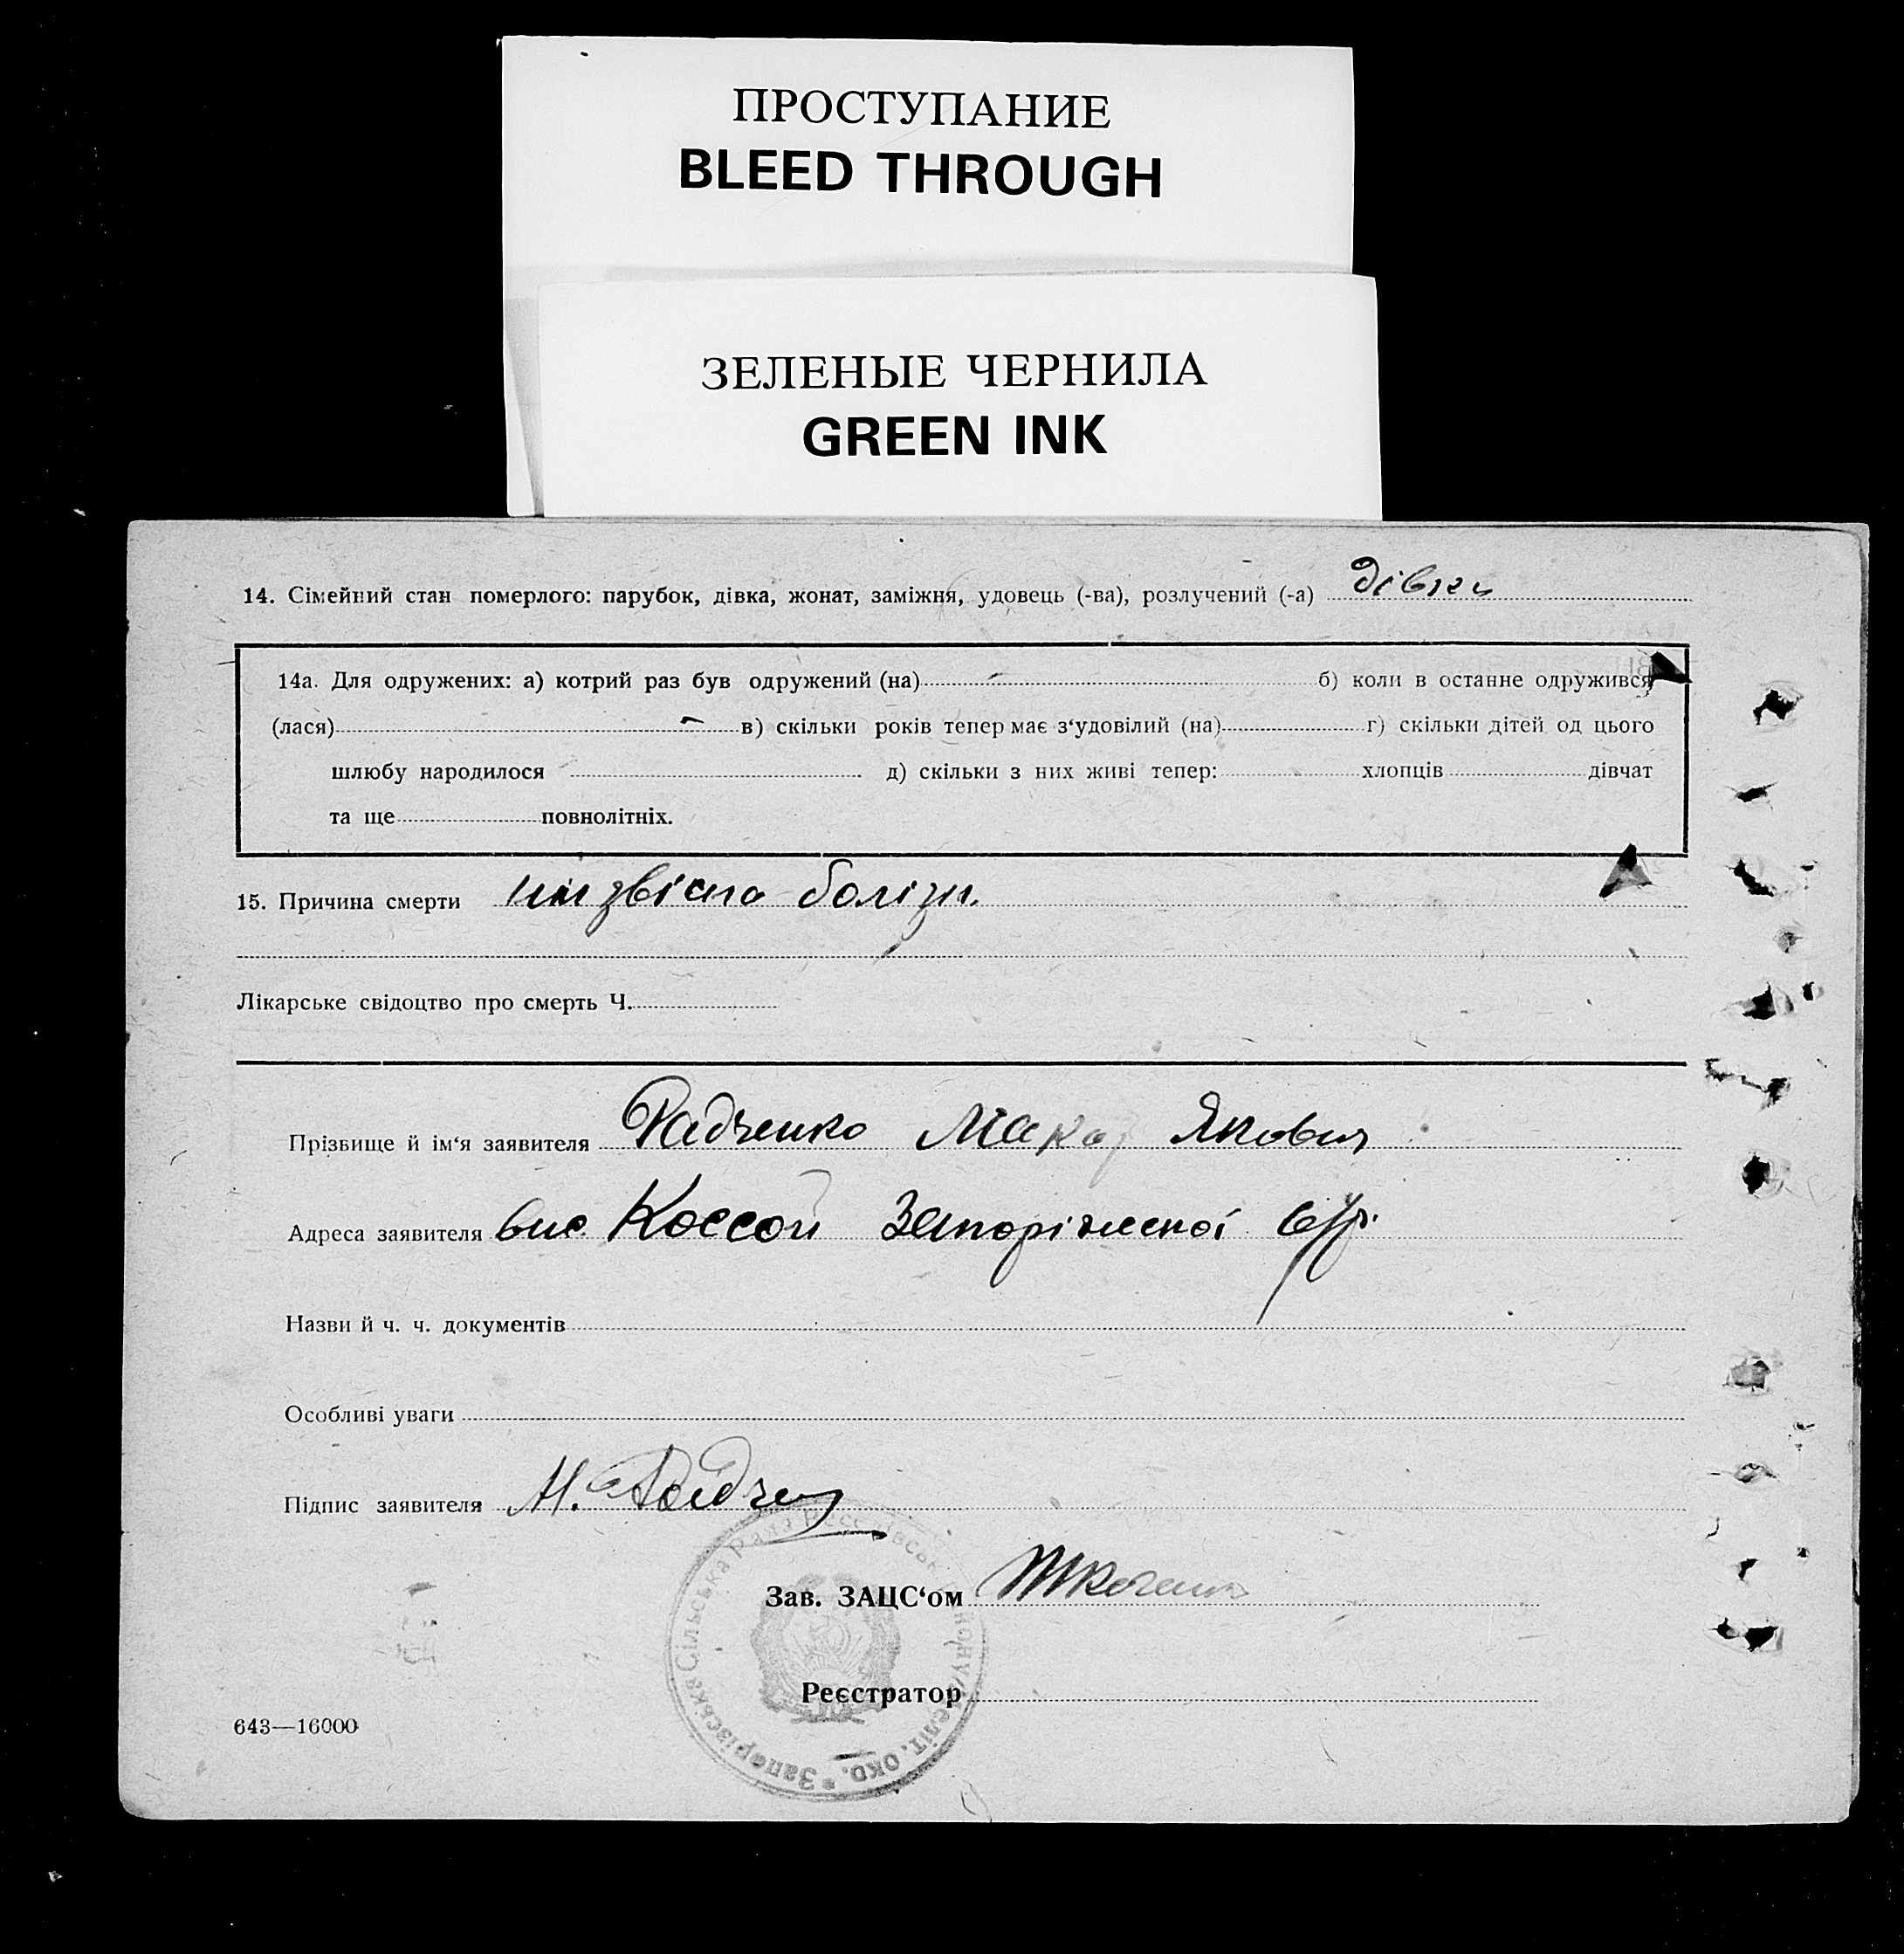 ПРОСТУПАНИЕ
BLEED THROUGH
ЗЕЛЕНЫЕ ЧЕРНИЛА
GREEN INK
14. Сімейний стан померлого: парубок, дівка, жонат, заміжня, удовець (-ва), розлучений (-а) дівка
14а. Для одружених: а) котрий раз був одружений (на) б) коли в останне одружився
(лася) – в) скільки років тепер має з‘удовілий (на) г) скільки дітей од цього
шлюбу народилося д) скільки з них живі тепер: хлопців дівчат
та ще повнолітніх.
15. Причина смерти
Лікарське свідоцтво про смерть Ч.
Прізвище й ім‘я заявителя Радченко Макар Якович
Адреса заявителя вис. Коссой Запоріжської
Назви й ч. ч. документів
Особливі уваги
Підпис заявителя М. Радчен
Зав. ЗАЦС‘ом Ткаченко
Реєстратор
Запорізська Сільська Рада окр.
643—16000